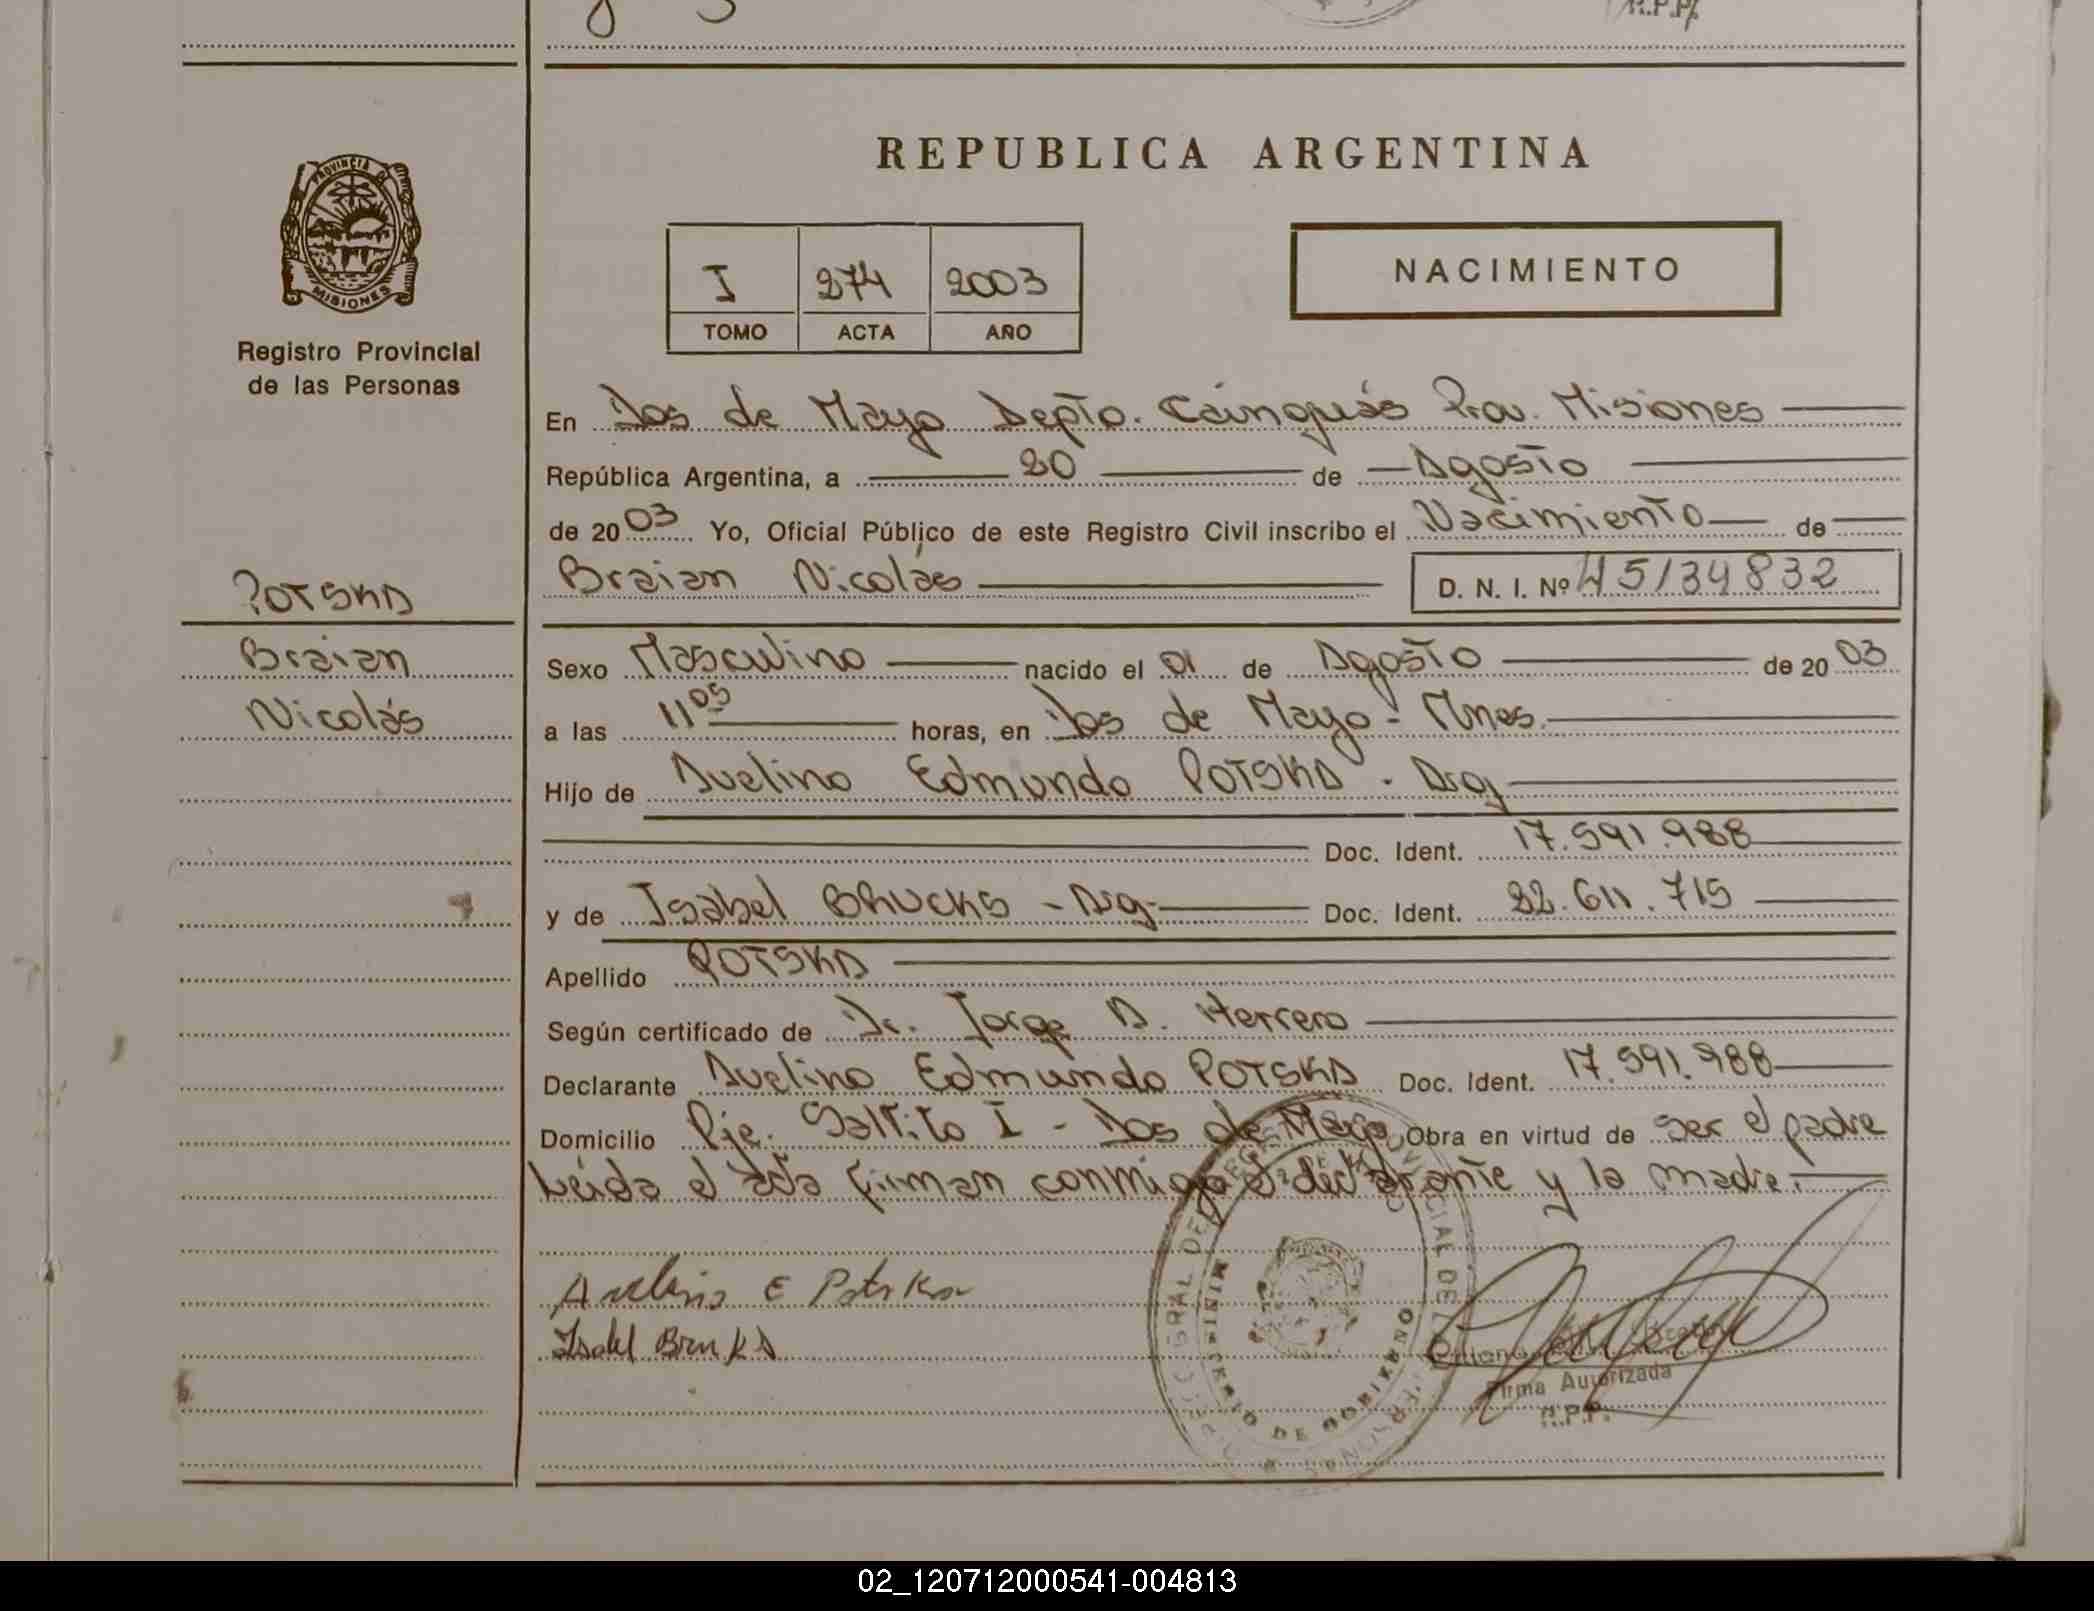 R.P.P.
REPUBLICA ARGENTINA
PROVINCIA DE
MISIONES
Registro Provincial
de las Personas
I 274 2003
TOMO ACTA AÑO
NACIMIENTO
En Dos de Mayo Depto. Cainguás Prov. Misiones
República Argentina, a 20 de Agosto
de 2003 Yo, Oficial Público de este Registro Civil inscribo el Nacimiento de
Braian Nicolás D. N. I. Nº 45134832
POTSKA
Braian
Nicolás
Sexo Masculino nacido el 01 de Agosto de 2003
a las 11 05 horas, en Dos de Mayo - Mnes.
Hijo de Avelino Edmundo POTSKA - Arg
Doc. Ident. 17.591.988
y de Isabel BRUCKS - Arg. Doc. Ident. 22.611.715
Apellido POTSKA
Según certificado de Dr. Jorge A. Herrero
Declarante Avelino Edmundo POTSKA Doc. Ident. 17.591.988
Domicilio Pje. Saltito I - Dos de Mayo Obra en virtud de ser el padre
Leída el acta firman conmigo el declarante y la madre.
Avelino E Potska
Isabel Brucks
MINISTERIO DE GOBIERNO
Firma Autorizada
R.P.P.
02_120712000541-004813